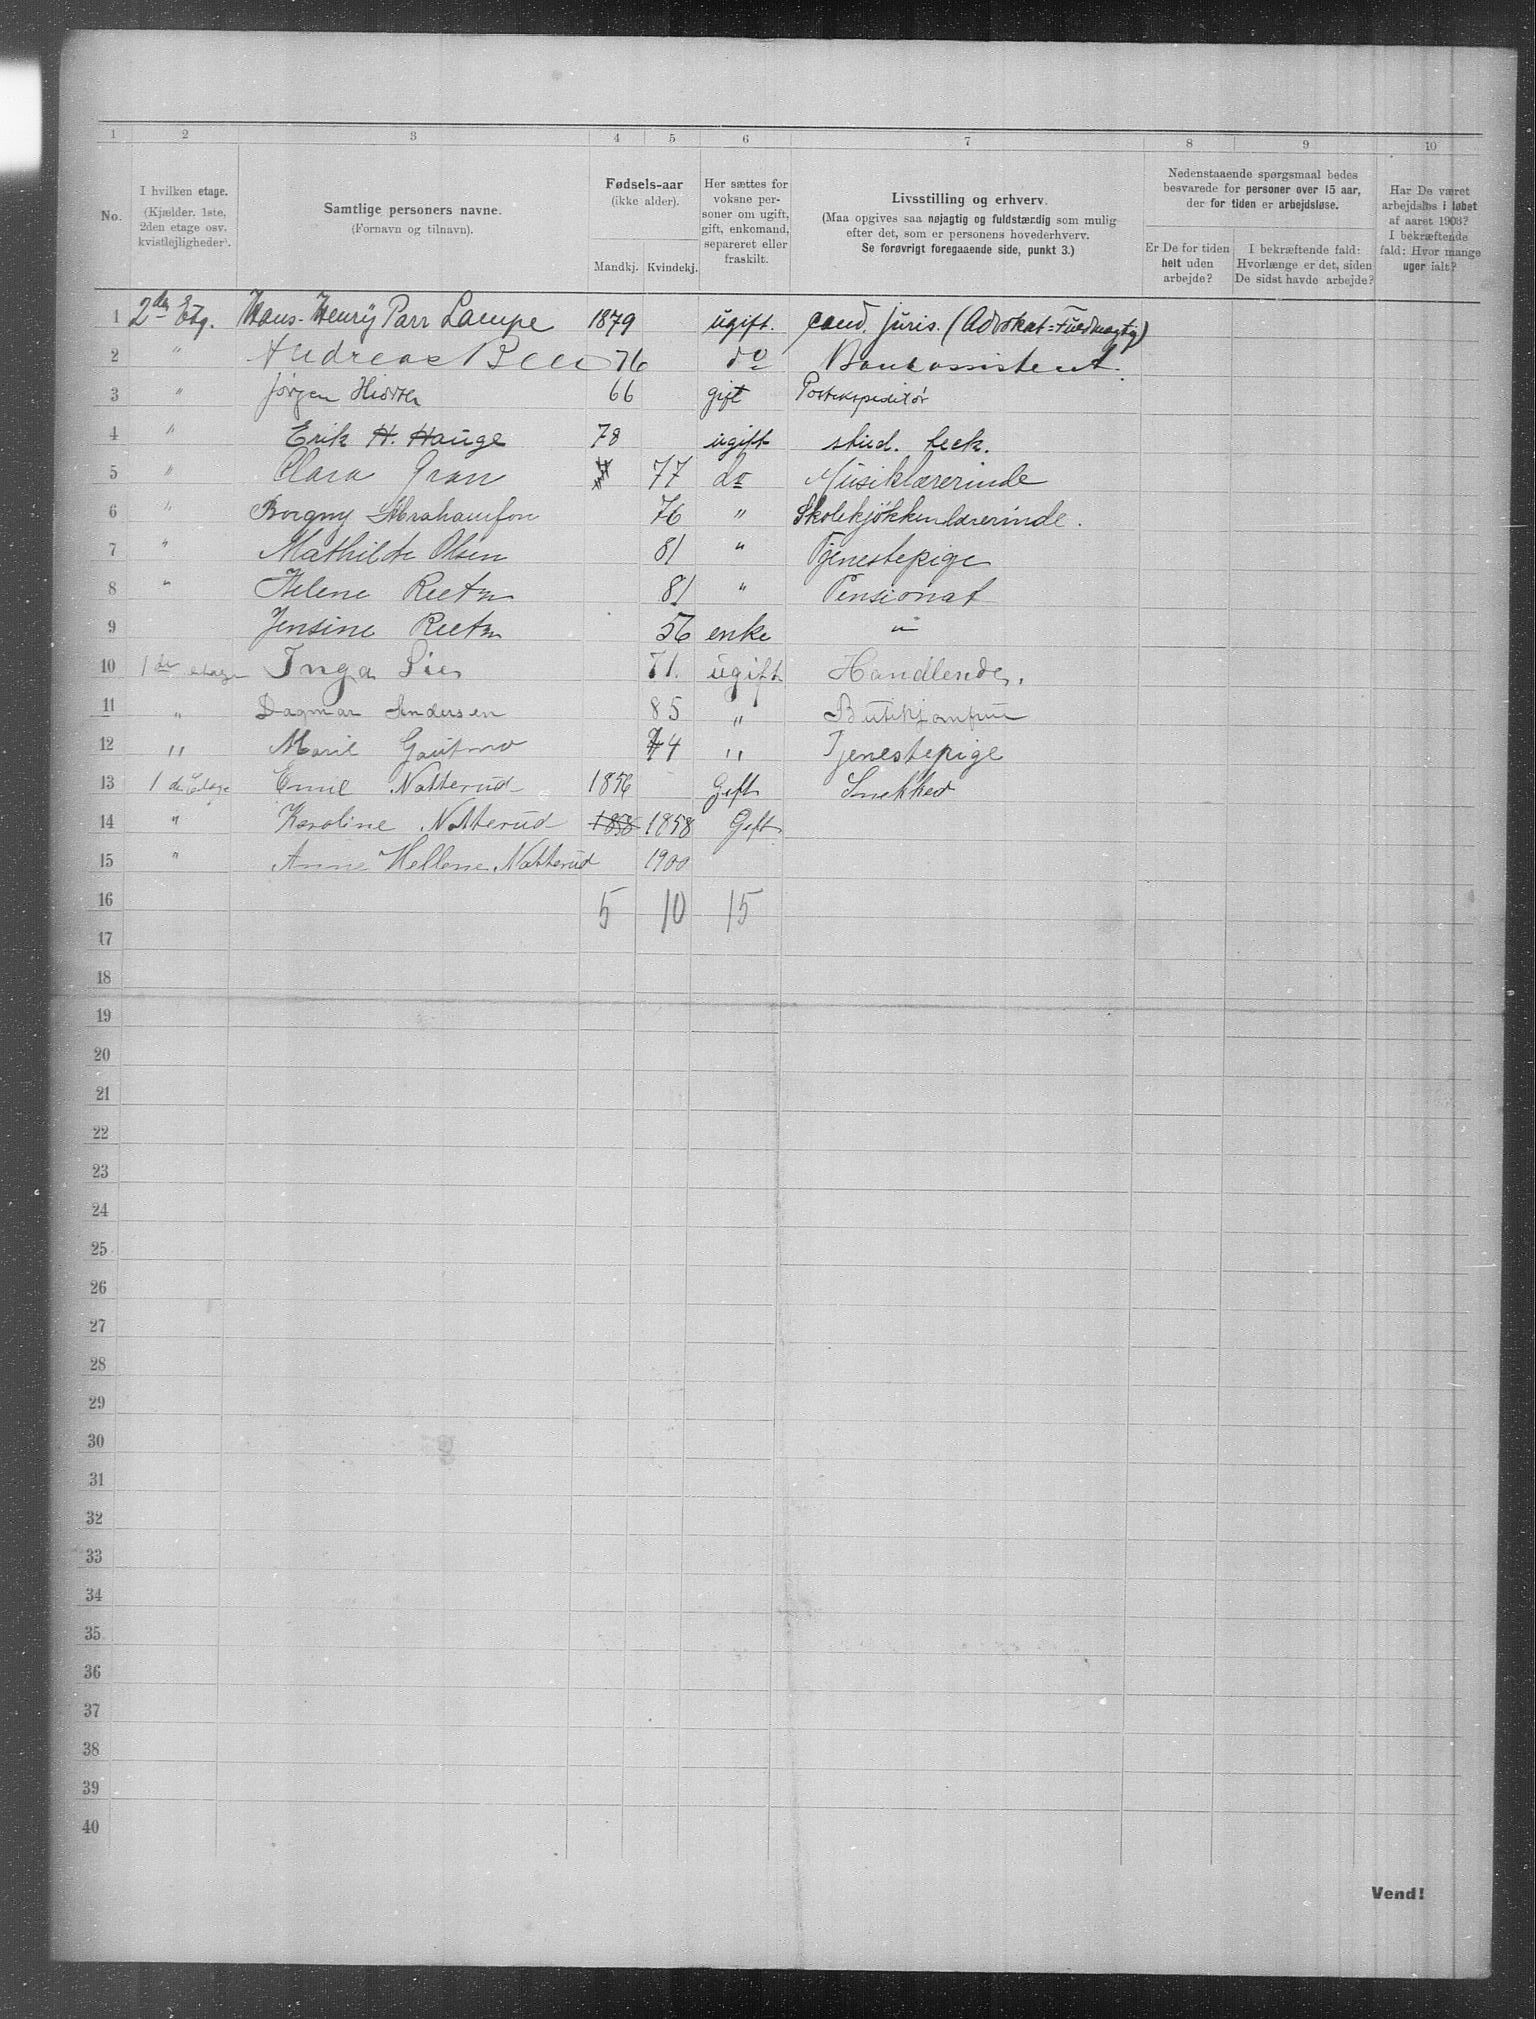 1 2 3 4 5 6 7 8 9 10
No.
I hvilken etage.
(Kjælder, 1ste,
2den etage osv.
kvistlejligheder).
Samtlige personers navne.
(Fornavn og tilnavn).
Fødsels-aar
(ikke alder).
Mandkj. Kvindekj.
Her sættes for
voksne per-
soner om ugift,
gift, enkomand,
separeret eller
fraskilt.
Livsstilling og erhverv.
(Maa opgives saa nøjagtig og fuldstændig som mulig
efter det, som er personens hovederhverv.
Se forøvrigt foregaaende side, punkt 3.)
Nedenstaaende spørgsmaal bedes
besvarede for personer over 15 aar,
der for tiden er arbejdsløse.
Er De for tiden
helt uden
arbejde?
I bekræftende fald:
Hvorlænge er det, siden
De sidst havde arbejde?
Har De været
arbejdsløs i løbet
af aaret 1903?
I bekræftende
fald: Hvor mange
uger ialt?
1 2den Etg. Hans-Henry Parr Lampe 1879 ugift. cand. juris. (Advokat=Fuldmægtig)
2 " Andreas 76 do Bankassistent.
3 " Jørgen 66 gift Postekspeditør
4 " Erik H. Hauge 78 ugift stud. teck.
5 " Clara Gran 77 do Musiklærerinde
6 " Borgny Abrahamson 76 " Skolekjøkkenlærerinde.
7 " Mathilde Olsen 81 " Tjenestepige
8 " Helene 81 " Pensionat
9 Jensine 56 enke "
10 1de etage Inga Lie 71. ugift Handlende.
11 " Dagmar Andersen 85 " Butikjomfrue
12 " Marie 74 " Tjenestepige
13 1 de Etage Emil Natterud 1856 Gift Snekker
14 " Karoline Natterud 1858 1858 Gift
15 " Anne Hellene Natterud 1900
16 5 10 15
17
18
19
20
21
22
23
24
25
26
27
28
29
30
31
32
33
34
35
36
37
38
39
40
Vend!